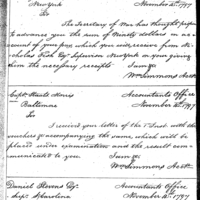 New York November 10th 1797
Sir
The Secretary of War has thought proper
to advance you the sum of Ninety dollars in ac-
count of your pay which you will receive from Ni-
cholas Fish Esq. Supervisor New York on your giving
them the necessary receipts. I am &c
Wm Simmons Acctt
Capt. Staats Morris Accountants Office
Baltimore November 10th 1797
Sir
I received your letter of the 1st Inst with the
vouchers accompanying the same, which will be
placed under examination and the result com-
municated to you. I am &c
Wm Simmons Acctt
Daniel Stevens Esq. Accountants Office
Carolina November 10th 1797